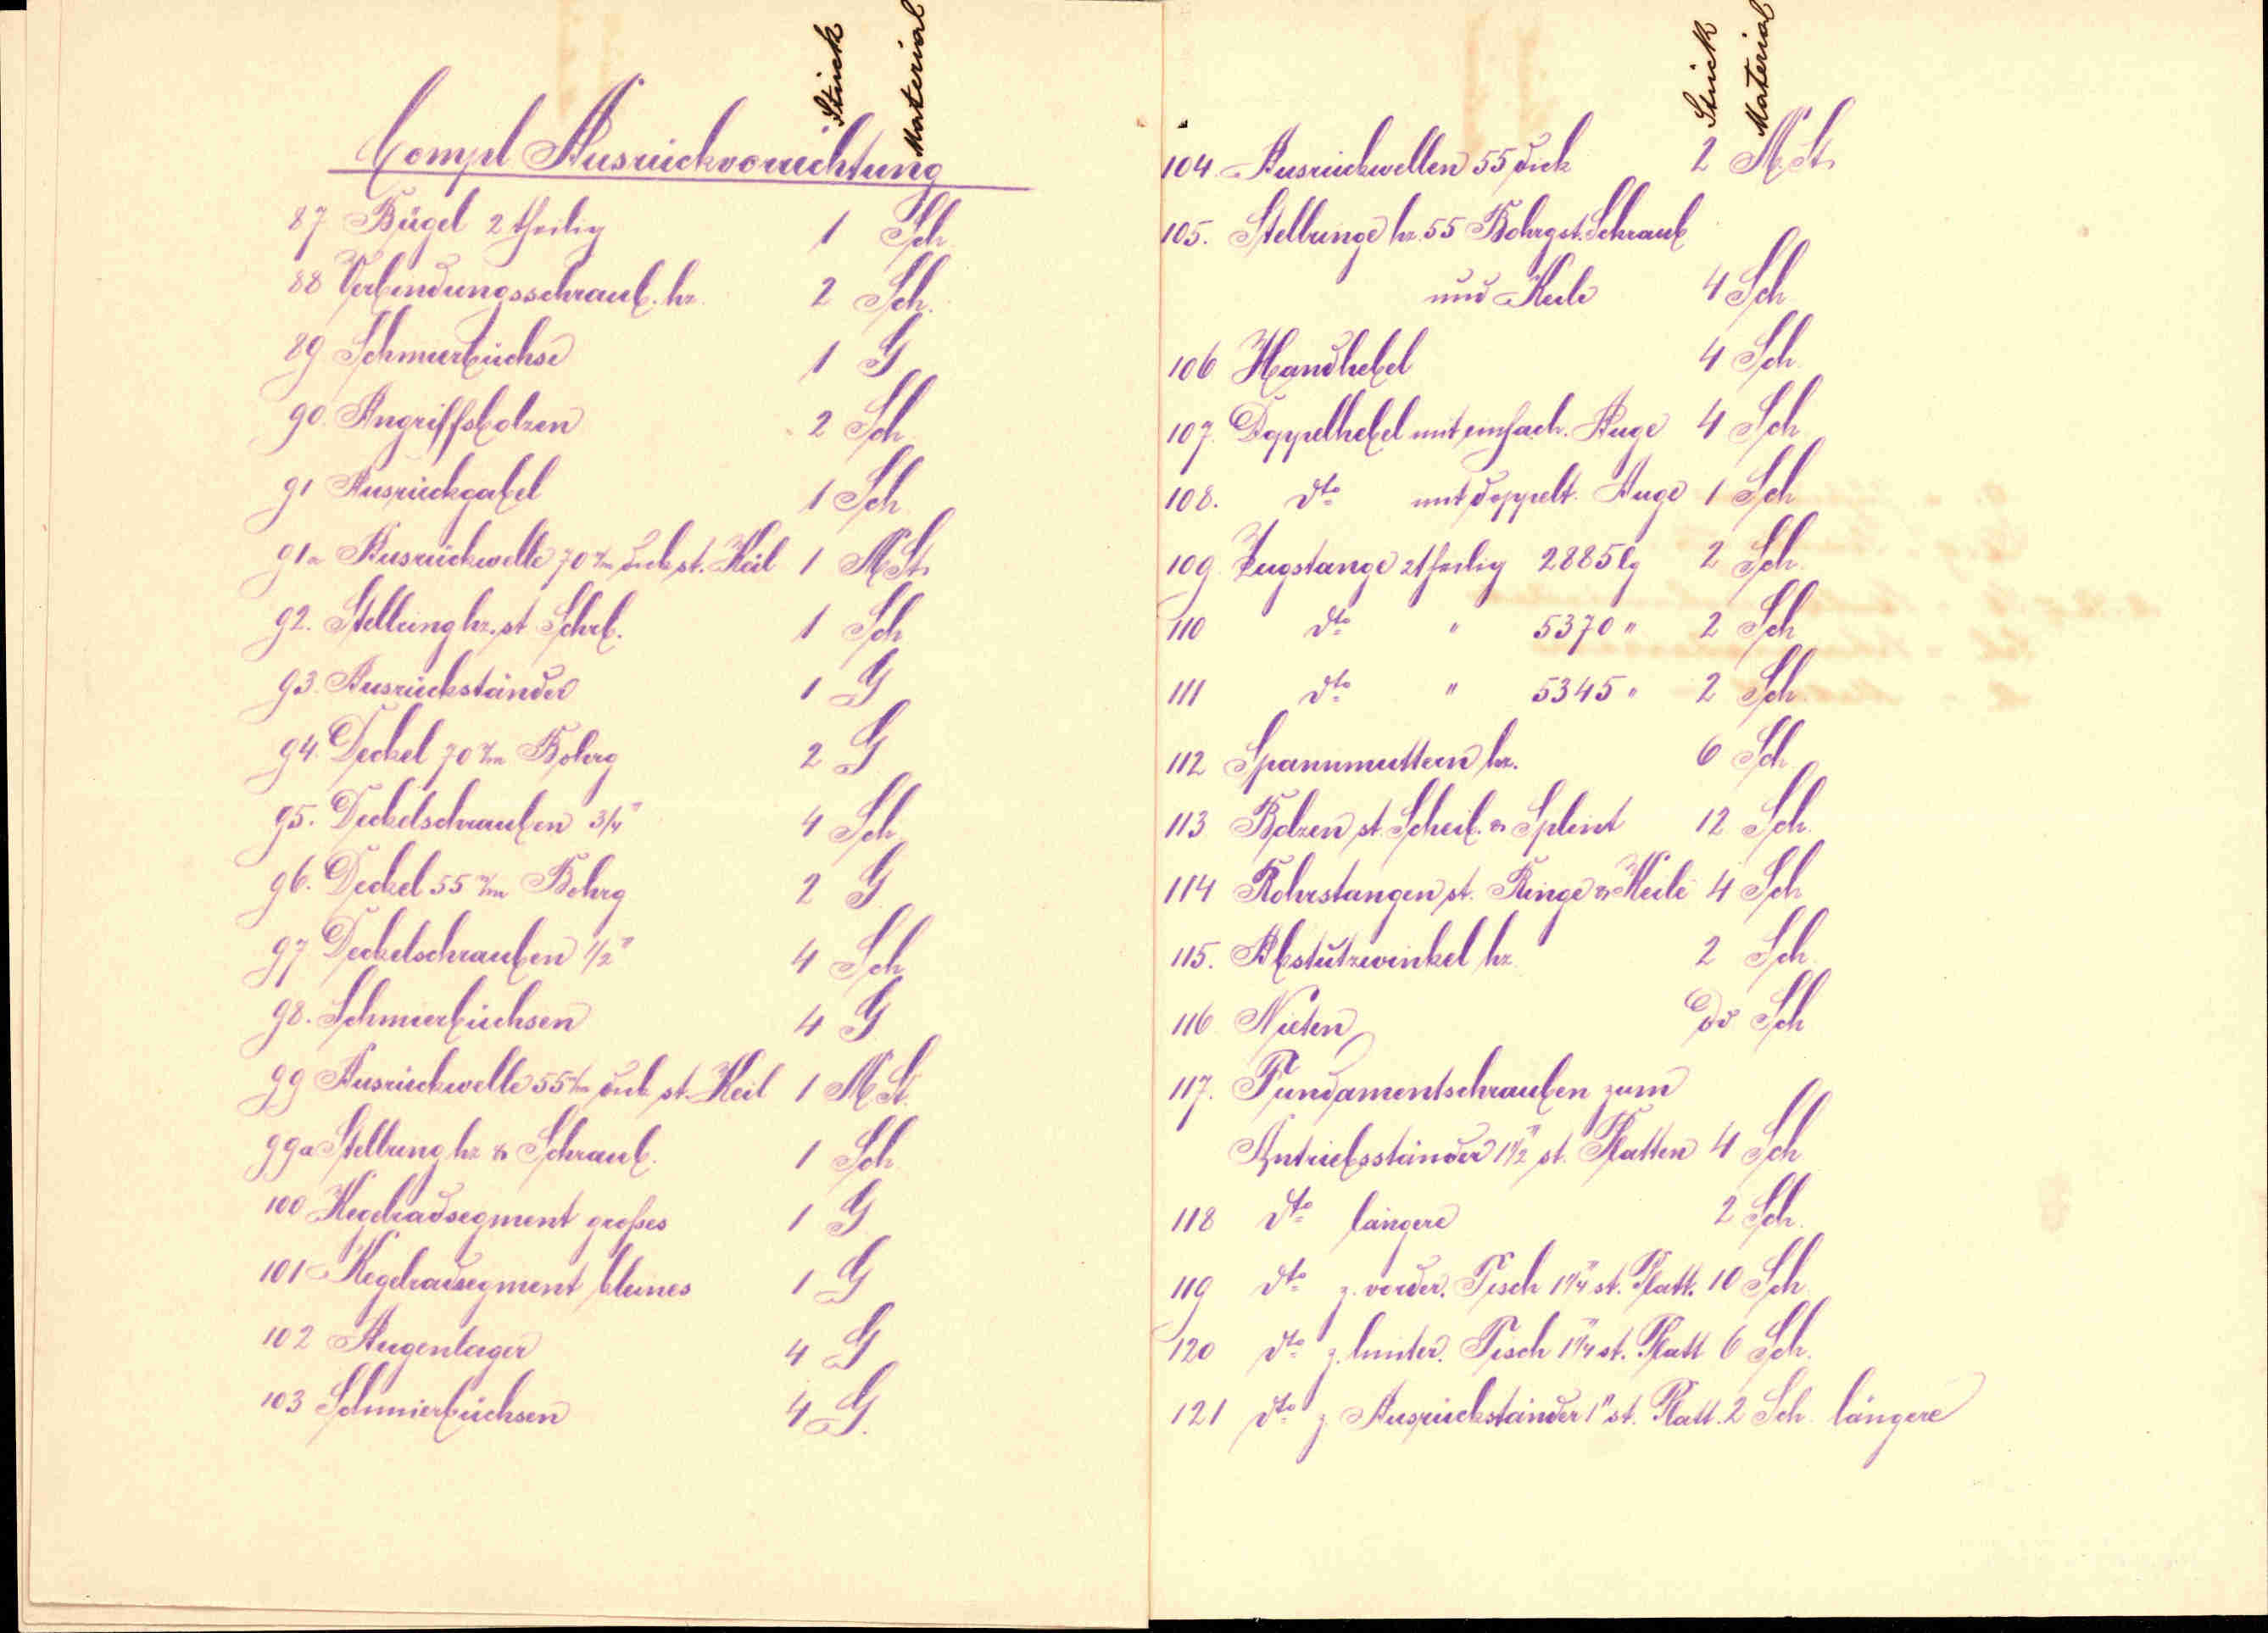 Stück Material
Compl Ausrückvorrichtung
87 Bügel 2 theilig 1 Sch
88 Verbindungsschraub. hz. 2 Sch.
89 Schmierbüchse 1 G
90. Angriffsbolzen 2 Sch
91 Ausrückgabel 1 Sch
91a Ausrückwelle 70 m/m dick st. Keil 1 M St.
92. Stellring hz. st Schrb. 1 Sch
93. Ausrückständer 1 G
94. Deckel 70 m/m Bohrg 2 G
95. Deckelschrauben 3/4" 4 Sch
96. Deckel 55 m/m Bohrg 2 G
97 Deckelschrauben 1/2" 4 Sch
98. Schmierbüchsen 4 G
99 Ausrückwelle 55 m/m dick st. Keil 1 M St.
99a Stellring hz & Schraub. 1 Sch
100 Kegelradsegment großes 1 G
101 Kegelradsegment kleines 1 G
102 Augenlager 4 G
103 Schmierbüchsen 4 G.
Stück Material
104 Ausrückwellen 55 dick 2 M. St.
105. Stellringe hz. 55 Bohrg st. Schraub
und Keile 4 Sch
106 Handhebel 4 Sch
107. Doppelhebel mit einfach. Auge 4 Sch
108. dto mit doppelt. Auge 1 Sch
109. Zugstange 2theilig 2885 lg 2 Sch
110 dto " 5370 " 2 Sch
111 dto " 5345 " 2 Sch
112 Spannmuttern hz. 6 Sch
113 Bolzen st. Scheib. & Splint 12 Sch.
114 Rohrstangen st. Ringe & Keile 4 Sch
115. Abstützwinkel hz 2 Sch
116 Nieten Sch
117. Fundamentschrauben zum
Antriebsständer 1 1/2" st. Platten 4 Sch
118 dto längere 2 Sch.
119 dto z. vorder. Tisch 1 1/4" st. Platt. 10 Sch
120 dto z. hinter. Tisch 1 1/4" st. Platt 6 Sch.
121 dto z. Ausrückständer 1" st. Platt. 2 Sch längere